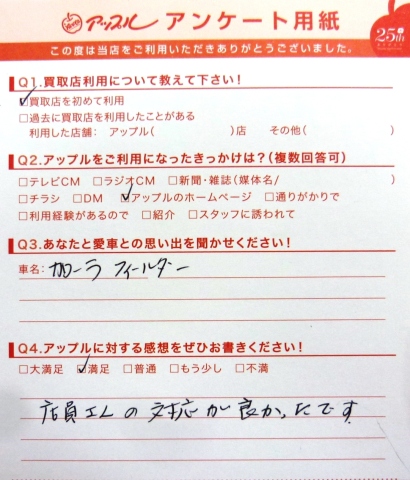 アップル アンケート用紙
25th
この度は当店をご利用いただきありがとうございました。
Q1.買取店利用について教えて下さい!
☑買取店を初めて利用
□過去に買取店を利用したことがある
利用した店舗: アップル( )店 その他( )
Q2.アップルをご利用になったきっかけは?(複数回答可)
□テレビCM □ラジオCM □新聞・雑誌(媒体名/ )
□チラシ □DM ☑アップルのホームページ □通りがかりで
□利用経験があるので □紹介 □スタッフに誘われて
Q3.あなたと愛車との思い出を聞かせください!
車名: カローラ フィールダー
Q4.アップルに対する感想をぜひお書きください!
□大満足 ☑満足 □普通 □もう少し □不満
店員さんの対応が良かったです